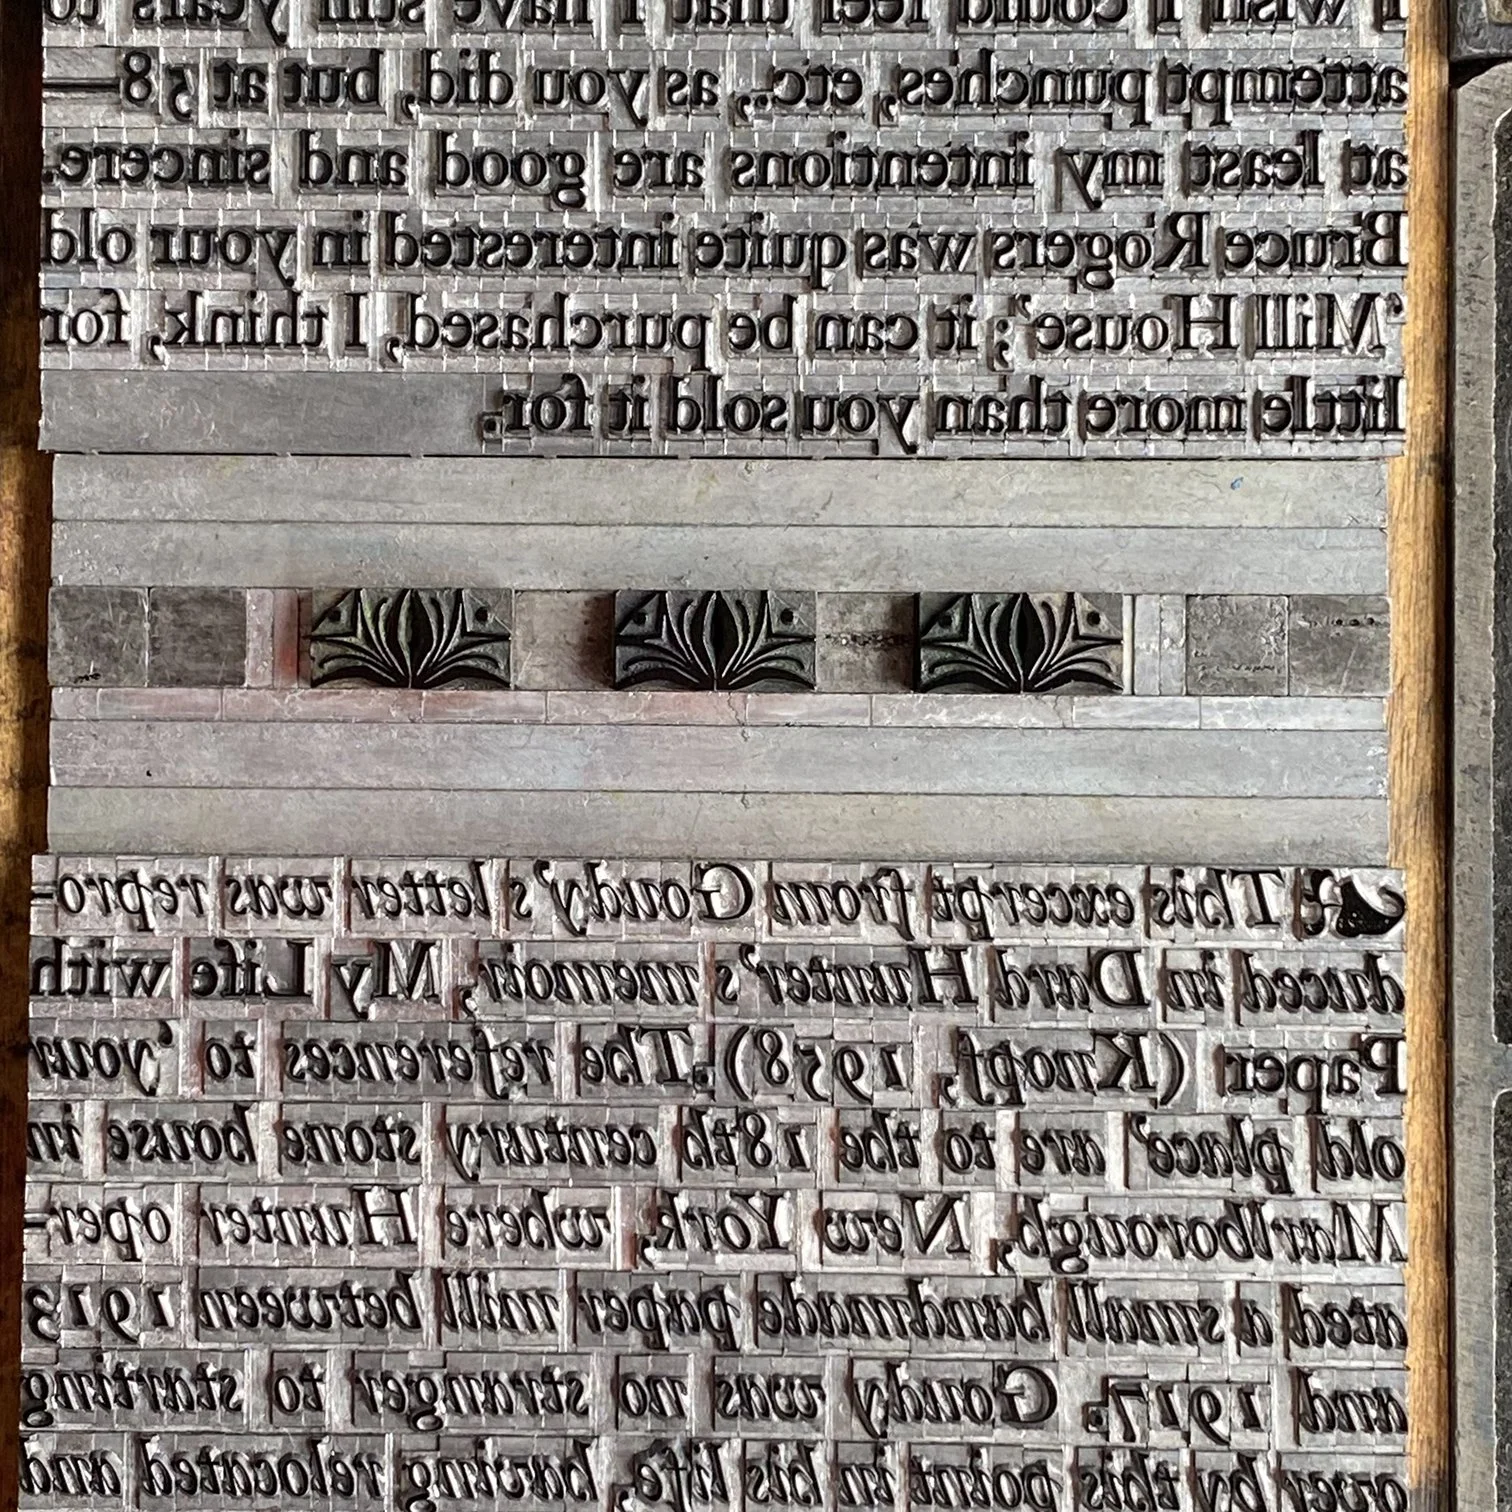 I wish I could feel that I have still years to
attempt punches, etc., as you did, but at 58—
at least my intentions are good and sincere.
Bruce Rogers was quite interested in your old
‘Mill House’; it can be purchased, I think, for
little more than you sold it for.
This excerpt from Goudy’s letter was repro-
duced in Dard Hunter’s memoir, My Life with
Paper (Knopf, 1958). The references to ‘your
old place’ are to the 18th century stone house in
Marlborough, New York, where Hunter oper-
ated a small handmade paper mill between 1913
and 1917. Goudy was no stranger to starting
over by this point in his life, having relocated and